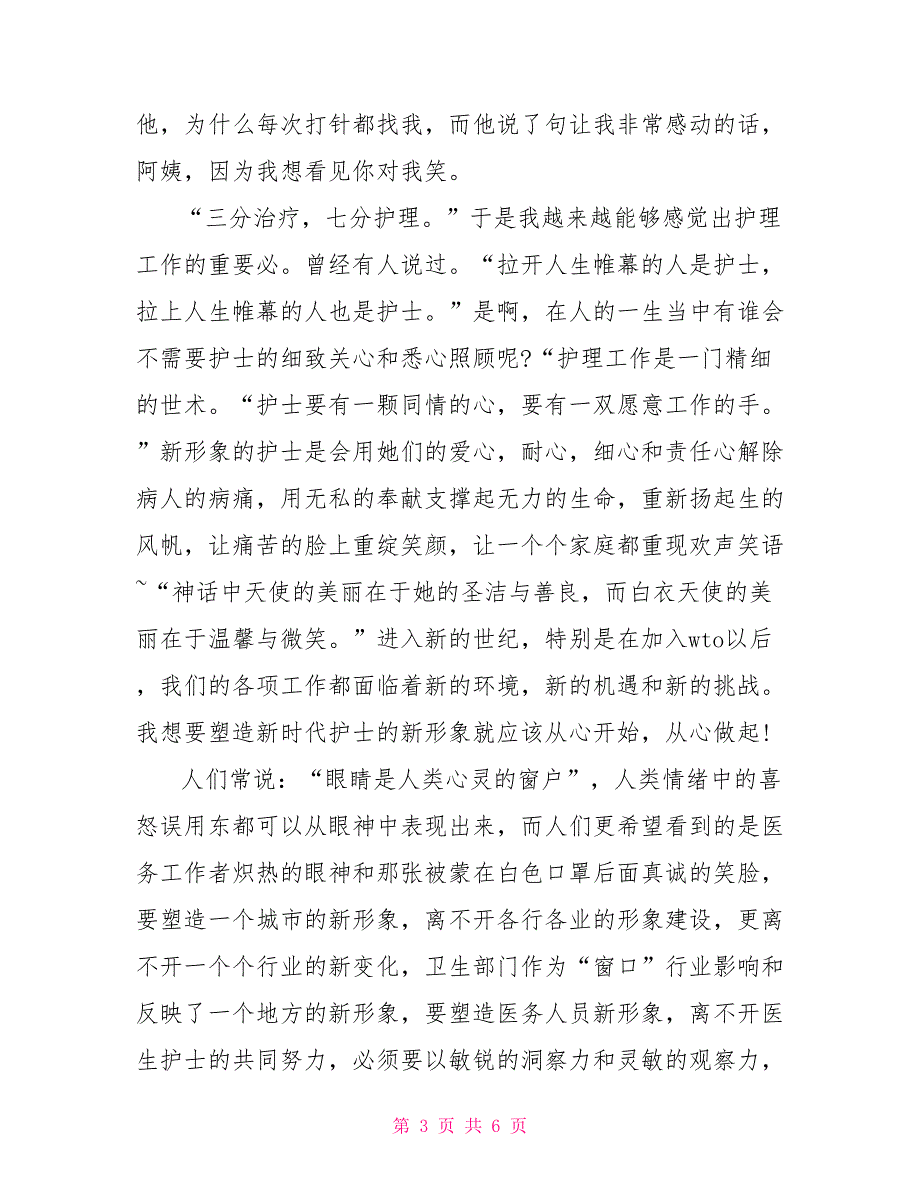 他，为什么每次打针都找我，而他说了句让我非常感动的话，
阿姨，因为我想看见你对我笑。
“三分治疗，七分护理。”于是我越来越能够感觉出护理
工作的重要必。曾经有人说过。“拉开人生帷幕的人是护士，
拉上人生帷幕的人也是护士。”是啊，在人的一生当中有谁会
不需要护士的细致关心和悉心照顾呢?“护理工作是一门精细
的世术。“护士要有一颗同情的心，要有一双愿意工作的手。
”新形象的护士是会用她们的爱心，耐心，细心和责任心解除
病人的病痛，用无私的奉献支撑起无力的生命，重新扬起生的
风帆，让痛苦的脸上重绽笑颜，让一个个家庭都重现欢声笑语
~“神话中天使的美丽在于她的圣洁与善良，而白衣天使的美
丽在于温馨与微笑。”进入新的世纪，特别是在加入wto以后
，我们的各项工作都面临着新的环境，新的机遇和新的挑战。
我想要塑造新时代护士的新形象就应该从心开始，从心做起!
人们常说：“眼睛是人类心灵的窗户”，人类情绪中的喜
怒误用东都可以从眼神中表现出来，而人们更希望看到的是医
务工作者炽热的眼神和那张被蒙在白色口罩后面真诚的笑脸，
要塑造一个城市的新形象，离不开各行各业的形象建设，更离
不开一个个行业的新变化，卫生部门作为“窗口”行业影响和
反映了一个地方的新形象，要塑造医务人员新形象，离不开医
生护士的共同努力，必须要以敏锐的洞察力和灵敏的观察力，
第 3 页 共 6 页